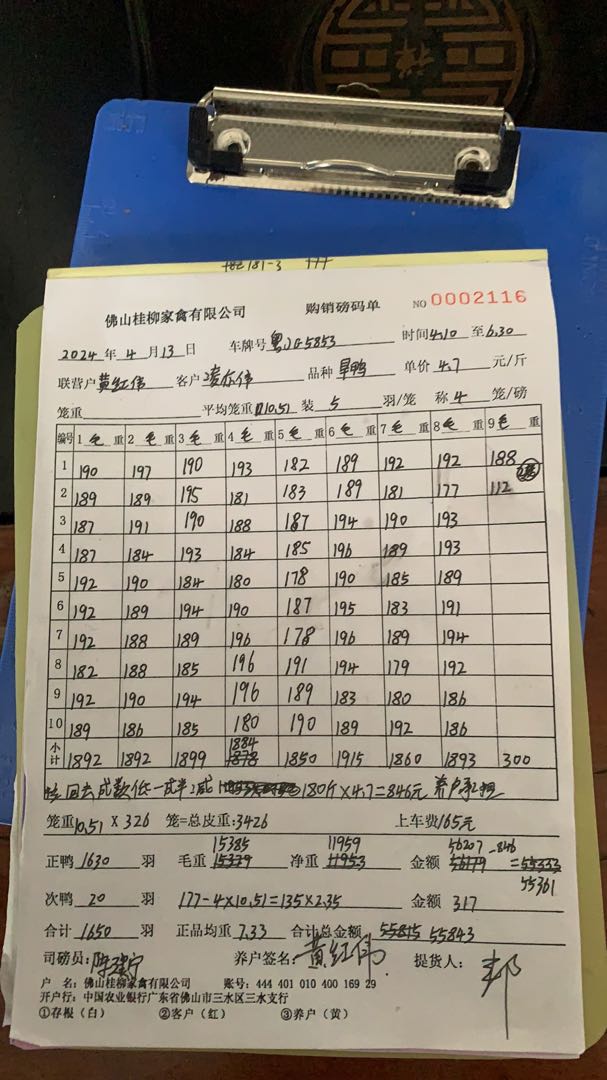 佛山桂柳家禽有限公司 购销磅码单 NO 0002116
2024 年 4 月 13 日 车牌号 粤 5853 时间 4:10 至 6.30
联营户 黄红伟 客户 品种 旱鸭 单价 4.7 元/斤
笼重 平均笼重 10.51 装 5 羽/笼 称 4 笼/磅
编号 1 毛 重 2 毛 重 3 毛 重 4 毛 重 5 毛 重 6 毛 重 7 毛 重 8 毛 重 9 毛 重
1 190 197 190 193 182 189 192 192 188
2 189 189 195 181 183 189 181 177 112
3 187 191 190 188 187 194 190 193
4 187 184 193 184 185 196 189 193
5 192 190 184 180 178 190 185 189
6 192 189 194 190 187 195 183 191
7 192 188 189 196 178 196 189 194
8 182 188 185 196 191 194 179 192
9 192 190 194 196 189 183 180 186
10 189 186 185 180 190 189 192 186
小计 1892 1892 1899 1884 1878 1850 1915 1860 1893 300
回去成数低一成半,减 180斤×4.7=846元 养户承担
笼重 10.51 × 326 笼=总皮重: 3426 上车费 165元
15385 11959 56207 -846
正鸭 1630 羽 毛重 15379 净重 11953 金额 56179 =55333
55361
次鸭 20 羽 177-4×10.51=135×2.35 金额 317
合计 1650 羽 正品均重 7.33 合计总金额 55815 55843
司磅员: 养户签名: 黄红伟 提货人: 邦
户 名: 佛山桂柳家禽有限公司 账号: 444 401 010 400 169 29
开户行: 中国农业银行广东省佛山市三水区三水支行
①存根(白) ②客户(红) ③养户(黄)